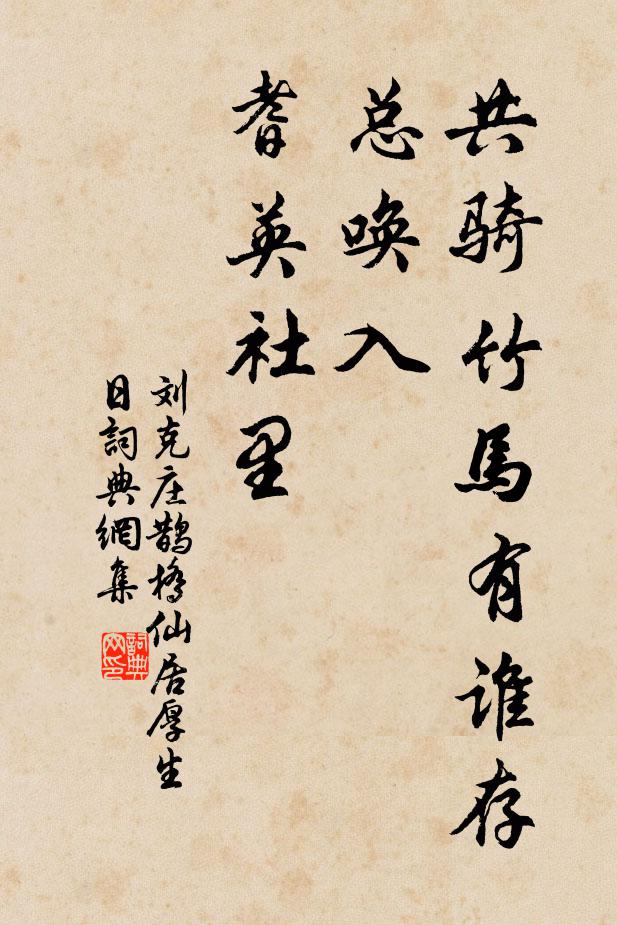 共骑竹馬有谁存
总唤入
耆英社里
刘克庄鹊橋仙居厚生
日詞典網集
詞典网印